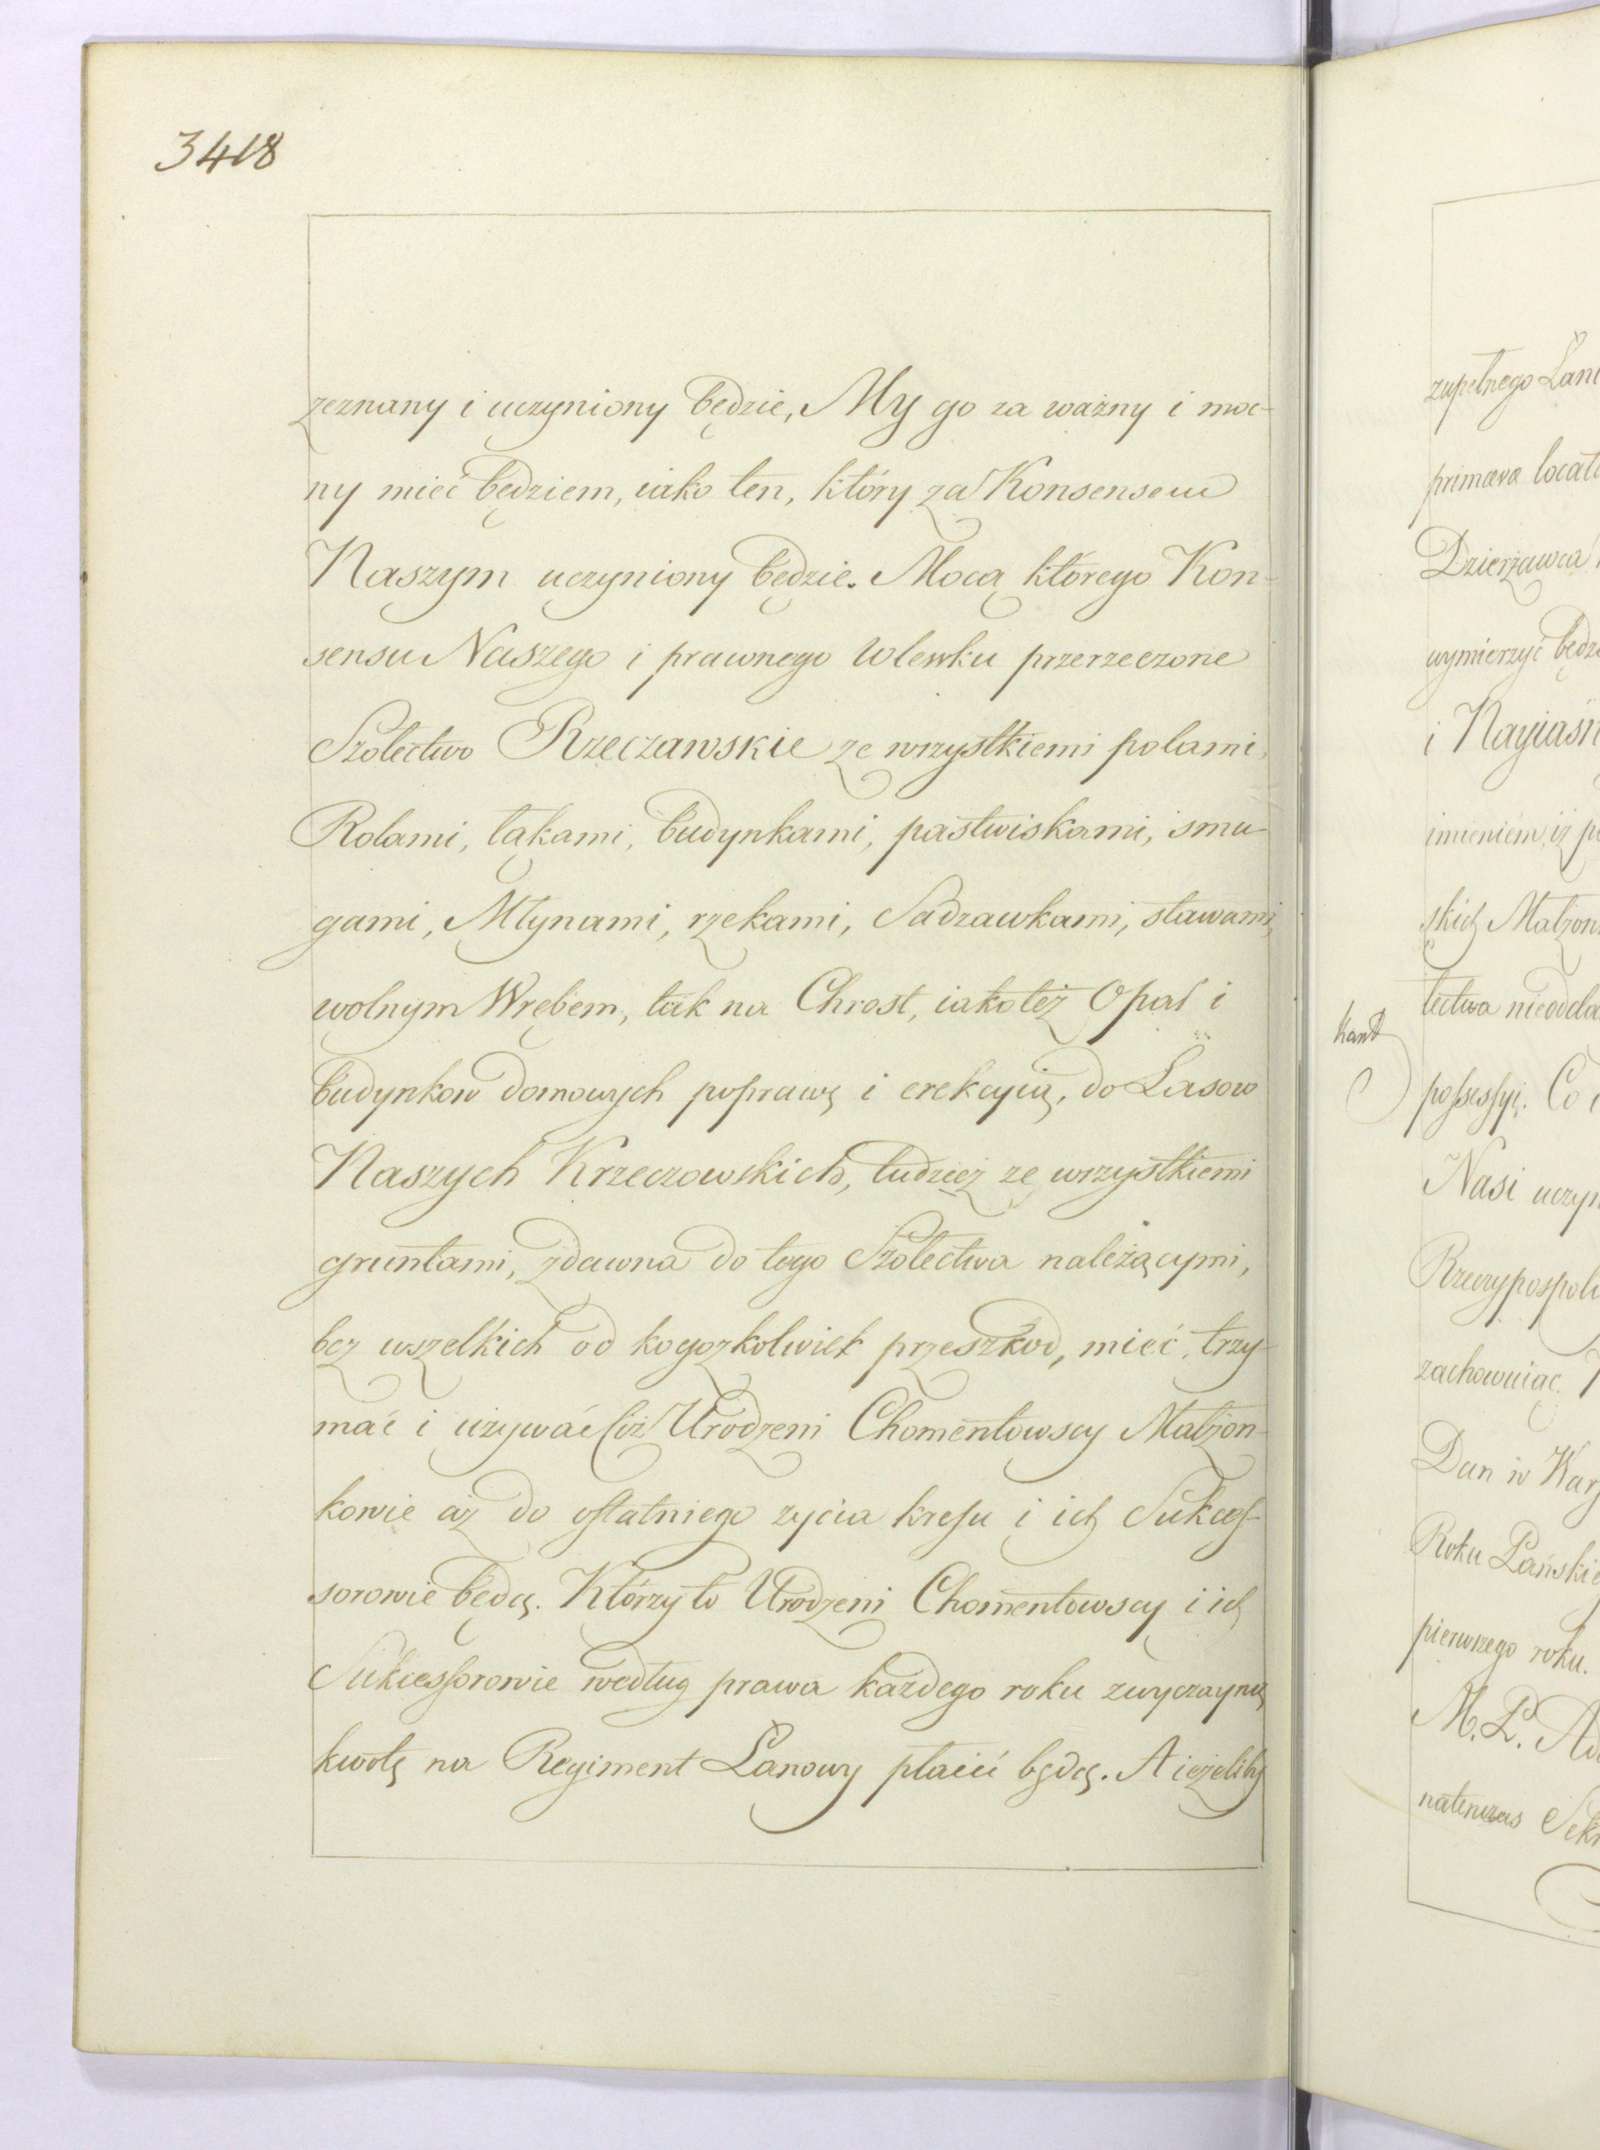 3418
zeznany i uczyniony będzie, My go za ważny i moc-
ny mieć będziem, iako ten, który za Konsensem
Naszym uczyniony będzie. Mocą którego Kon-
sensu Naszego i prawnego wlewku przerzeczone
Szołectwo Rzeczawskie ze wszystkiemi polami,
Rolami, łąkami, budynkami, pastwiskami, smu-
gami, Młynami, rzekami, Sadzawkami, stawami,
wolnym Wrębem, tak na Chrost, iako też Opał i
budynkow domowych poprawę i erekcyią, do Lasow
Naszych Krzeczowskich, tudzież ze wszystkiemi
gruntami, zdawna do tego Szołectwa należącymi,
bez wszelkich od kogożkolwiek przeszkod, mieć, trzy-
mać i używać ciż Urodzeni Chomentowscy Małżon-
kowie aż do ostatniego zycia kresu i ich Sukces-
sorowie będą. Którzy to Urodzeni Chomentowscy i ich
Sukcessorowie według prawa każdego roku zwyczayną
kwotę na Regiment Łanowy płacić będą. A ieżeliby
zupełnego Łanu
primæva locat
Dzierżawca
wymierzyć będz
i Nayiaśn
imieniem, iż
skich Małżon
łectwa nieodda
kant
possessyi. Co
Nasi uczyn
Rzeczypospol
zachowuiąc.
Dan w War
Roku Pański
pierwszego roku.
M. P.
natenczas Sek